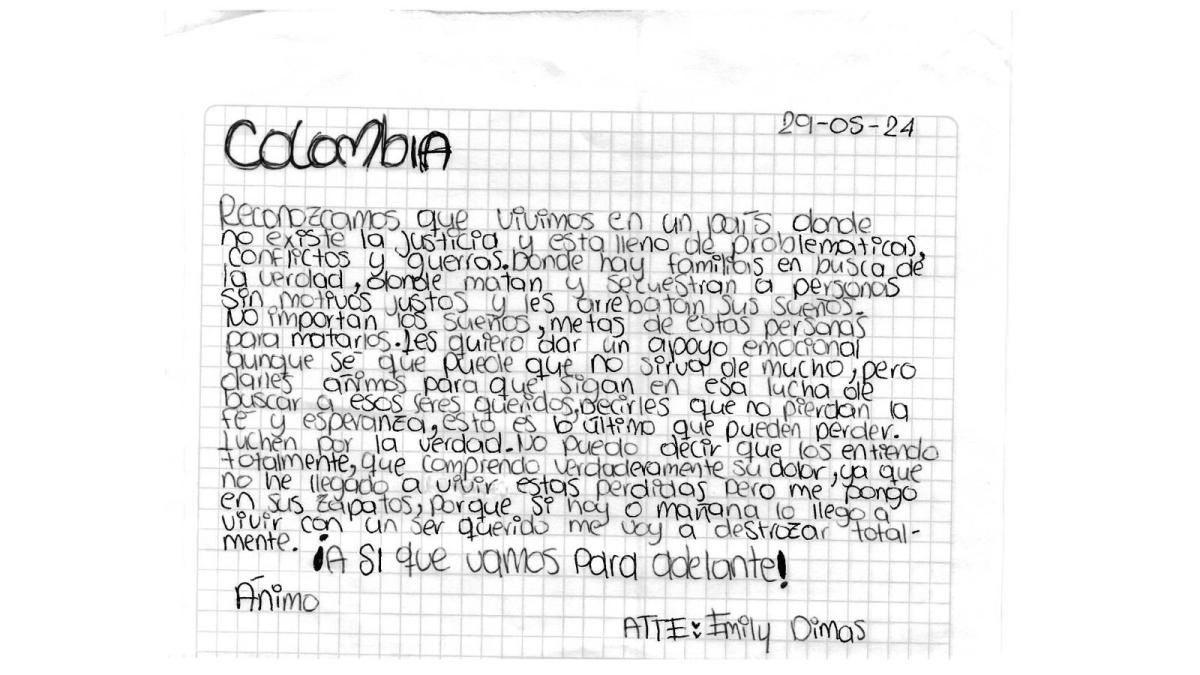 COLOMBIA
29-05-24
Reconozcamos que vivimos en un país donde
no existe la justicia y esta lleno de problematicas,
conflictos y guerras. Donde hay familias en busca de
la verdad, donde matan y secuestran a personas
sin motivos justos y les arrebatan sus sueños.
No importan los sueños, metas de estas personas
para matarlos. Les quiero dar un apoyo emocional
aunque sé que puede que no sirva de mucho, pero
darles añimos para que sigan en esa lucha de
buscar a esos seres queridos, Decirles que no pierdan la
fé y esperanza, esto es lo último que pueden perder.
Luchen por la verdad. No puedo decir que los entiendo
totalmente, que comprendo verdaderamente su dolor, ya que
no he llegado a vivir estas perdidas pero me pongo
en sus zapatos, porque si hoy o mañana lo llego a
vivir con un ser querido me voy a destrozar total-
mente. ¡A SI que vamos para adelante!
Ánimo
ATTE: Emily Dimas